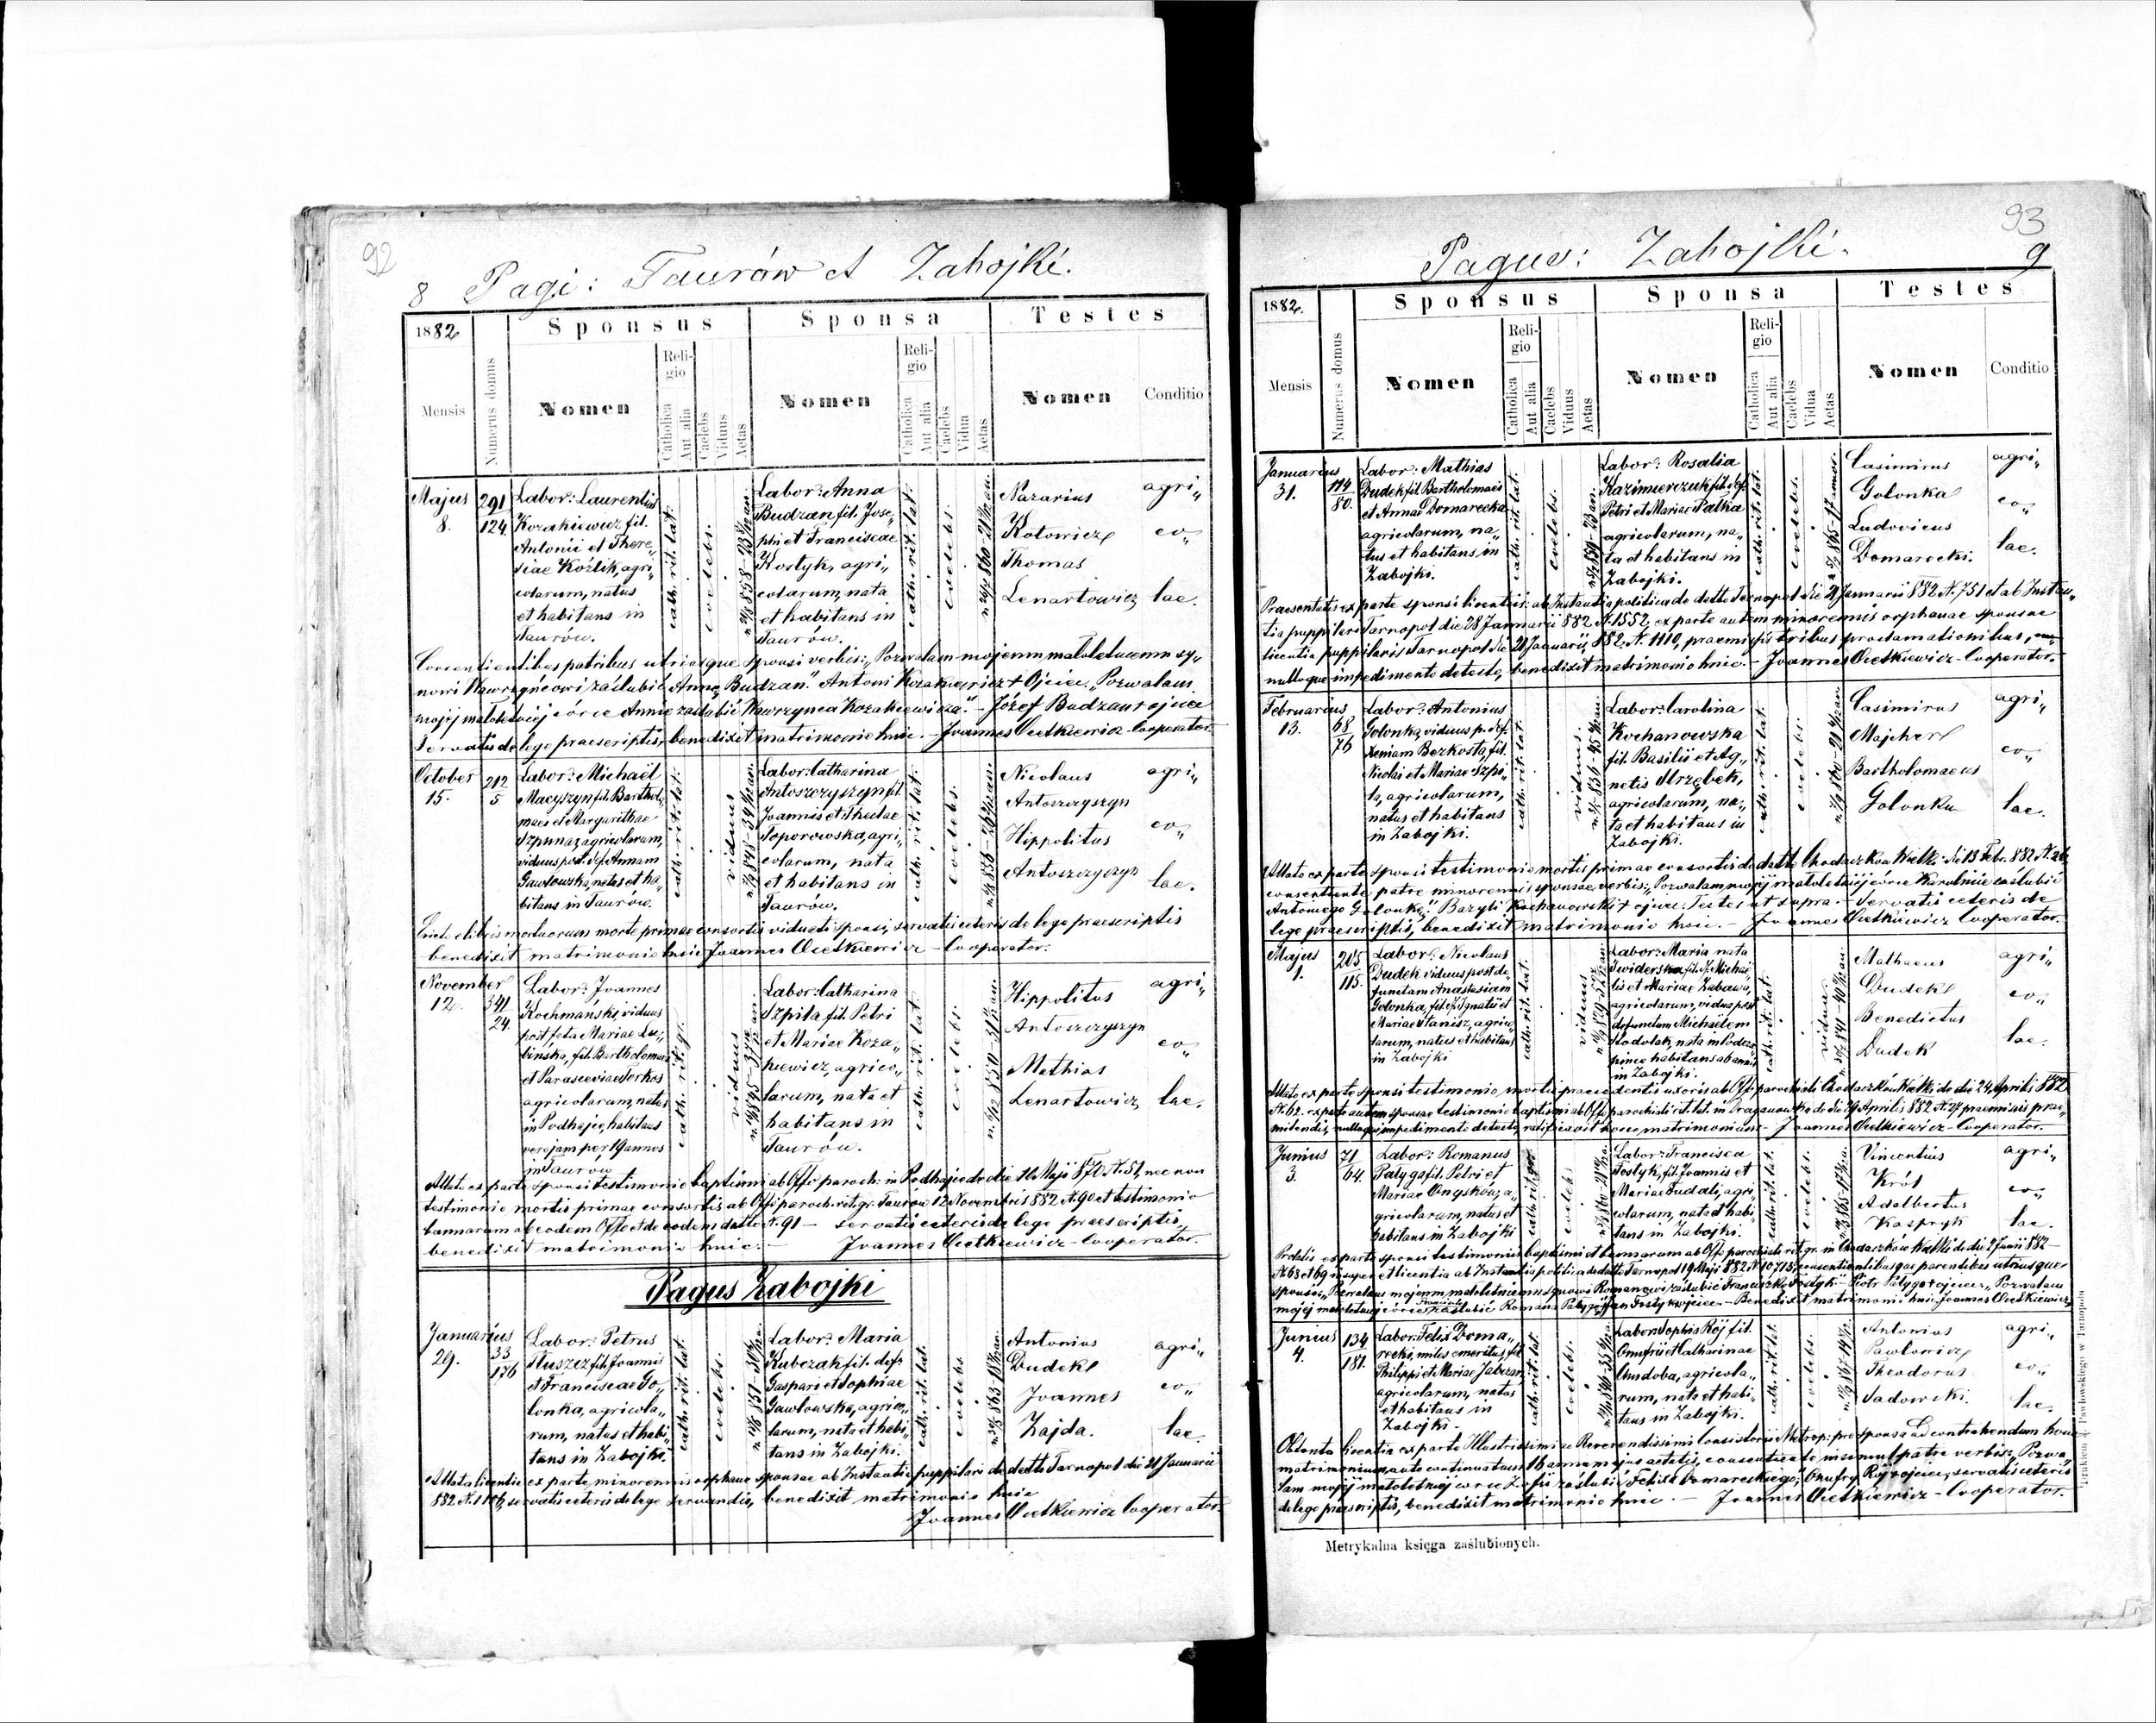 92
8 Pagi: Taurów et Zabojki.
1882
Mensis
Numerus domus
Sponsus
Nomen
Religio
Catholica
Aut alia
Caelebs
Viduus
Aetas
Sponsa
Nomen
Religio
Catholica
Aut alia
Caelebs
Vidua
Aetas
Testes
Nomen
Conditio
Majus
8.
291
124.
Labor: Laurentius
Kozakiewicz fil.
Antonii et There„
siae Koźlik, agri„
colarum, natus
et habitans in
Taurów.
cath. rit. lat.
coelebs.
Labor: Anna
Budzan fil. Jose„
phi et Franciscae
Kostyk, agri„
colarum, nata
et habitans in
Taurów.
cath. rit. lat.
coelebs.
Nazarius
Kotowicz
Thomas
Lenartowicz
agri„
co„
lae.
Consentientibus patribus utriusque sponsi verbis: „Pozwalam mojemu małoletniemu sy„
nowi Wawrzyńcowi zaślubić Annę Budzan." Antoni Kozakiewicz + Ojciec. „Pozwalam
mojej małoletniéj córce Annie zaślubić Wawrzyńca Kozakiewicza." – Józef Budzan + ojciec
Servatis de lege praescriptis, benedixit matrimonio huic. – Joannes Cietkiewicz Cooperator.
October
15.
212
5
Labor: Michaël
Macyszyn fil. Bartholo„
maei et Margarithae
Szpunaz agricolarum,
viduus post def. Annam
Gawłowska, natus et ha„
bitans in Taurów.
cath. rit. lat.
viduus
Labor: Catharina
Antoszczyszyn fil.
Joannis et Theclae
Toporowska, agri„
colarum, nata
et habitans in
Taurów.
cath. rit. lat.
coelebs.
Nicolaus
Antoszczyszyn
Hippolitus
Antoszczyszyn
agri„
co„
lae.
libris mortuorum morte primae consortis viduati sponsi, servatis ceteris de lege praescriptis
benedixit matrimonio huic Joannes Cietkiewicz – Cooperator.
November
12.
341
24.
Labor: Joannes
Kochmański, viduus
post Mariae Lu„
bińska, fil. Bartholomaei
et Parasceviae Torkos
agricolarum, natus
in Podhajce, habitans
vero jam per 19 annos
in Taurów
cath. rit. gr.
viduus
Labor: Catharina
Szpila fil. Petri
et Mariae Koza„
kiewicz, agrico„
larum, nata et
habitans in
Taurów.
cath. rit. lat.
coelebs.
Hippolitus
Antoszczyszyn
Mathias
Lenartowicz
agri„
co„
lae.
Allato ex parte sponsi testimonio baptismi ab Offo paroch: in Podhajce de die 16 Maji 870 N. 51, nec non
testimonio mortis primae consortis ab Offo paroch. rit. gr. Taurów 12 Novembris 882 N. 90 et testimonio
bannorum ab eodem Offo et de eodem datto N. 91 – servatis ceteris de lege praescriptis,
benedixit matrimonio huic. – Joannes Cietkiewicz – Cooperator.
Pagus Zabojki
Januarius
29.
33
176
Labor: Petrus
Tłuszcz fil. Joannis
et Franciscae Go„
lonka, agricola„
rum, natus et habi„
tans in Zabojki.
cath. rit. lat.
coelebs.
Labor: Maria
Kubczak fil. def.
Gaspari et Sophiae
Gawłowska, agrico„
larum, nata et habi„
tans in Zabojki.
cath. rit. lat.
coelebs
Antonius
Dudek
Joannes
Zajda.
agri„
co„
lae
Allata licentia ex parte minorennis orphanae sponsae ab Instantia pupilari de datto Tarnopol die 21 Januarii
882 N. 1106, servatis ceteris de lege servandis, benedixit matrimonio huic
Joannes Cietkiewicz Cooperator.
93
Pagus: Zabojki. 9
1882.
Mensis
Numerus domus
Sponsus
Nomen
Religio
Catholica
Aut alia
Caelebs
Viduus
Aetas
Sponsa
Nomen
Religio
Catholica
Aut alia
Caelebs
Vidua
Aetas
Testes
Nomen
Conditio
Januarius
31.
114
80.
Labor: Mathias
Dudek fil. Bartholomaei
et Annae Domarecka
agricolarum, na„
tus et habitans in
Zabojki.
cath. rit. lat.
coelebs.
Labor: Rosalia
Kazimierczuk fil. def.
Petri et Mariae Pałka
agricolarum, na„
ta et habitans in
Zabojki.
cath. rit. lat.
coelebs.
Casimirus
Golonka
Ludovicus
Domarecki.
agri„
co„
lae.
Praesentatis ex parte sponsi licentiis: ab Instantia politica de datto Tarnopol die 2 Januarii 882 N. 751 et ab Instan„
tia pupilari Tarnopol die 28 Januarii 882 N. 1552, ex parte autem minorennis orphanae sponsae
licentia pupilaris Tarnopol die 21 Januarii 882 N. 1110, praemissis tribus proclamationibus,
nulloque impedimento detecto, benedixit matrimonio huic. – Joannes Cietkiewicz – Cooperator.
Februarius
13.
68
76
Labor: Antonius
Golonka, viduus p. def.
Xeniam Bezkosta, fil.
Nicolai et Mariae Szpi„
la, agricolarum,
natus et habitans
in Zabojki.
cath. rit. lat.
viduus.
Labor: Carolina
Kochanowska
fil. Basilii et Ag„
netis Strzębek,
agricolarum, na„
ta et habitans in
Zabojki.
cath. rit. lat.
coelebs.
Casimirus
Majcher
Bartholomaeus
Golonka
agri„
co„
lae.
Allato ex parte sponsi testimonio mortis primae consortis de datto Chodaczków Wielki die 13 Febr. 882 N. 26,
consentiente patre minorennis sponsae verbis: „Pozwalam mojéj małoletniéj córce Karolinie zaślubić
Antoniego Golonkę." Bazyli Kochanowski + ojciec. Testes ut supra. – Servatis ceteris de
lege praescriptis, benedixit matrimonio huic. – Joannes Cietkiewicz Cooperator.
Majus
1.
205
115.
Labor: Nicolaus
Dudek viduus post de„
functam Anastasiam
Golonka, fil. Ignatii et
Mariae Stanisz, agrico„
larum, natus et habitans
in Zabojki
cath. rit. lat.
viduus
Labor: Maria nata
Świderska fil. Michaë„
lis et Mariae Zabawa,
agricolarum, vidua post
defunctum Michaëlem
Hodolak, nata
habitans ab annis
in Zabojki.
cath. rit. lat.
vidua
Mathaeus
Dudek
Benedictus
Dudek
agri„
co„
lae.
Allato ex parte sponsi testimonio mortis praecedentis uxoris ab Offo parochiali Chodaczków Wielki de die 24 Aprilis 882
N. 62. ex parte autem sponsae testimonio baptismi ab Offo parochiali rit. lat. in Draganówka de die 29 Aprilis 882 N. 27 praemissis prae„
mitendis, nulloque impedimento detecto, ratificavit hocce matrimonium – Joannes Cietkiewicz – Cooperator.
Junius
3.
71
64.
Labor: Romanus
Patyga fil. Petri et
Mariae a„
gricolarum, natus et
habitans in Zabojki
cath. rit. gr.
coelebs
Labor: Francisca
Fostyk, fil. Joannis et
Mariae Fudali, agri„
colarum, nata et habi„
tans in Zabojki.
cath. rit. lat.
coelebs.
Vincentius
Król
Adalbertus
Kaspryk
agri„
co„
lae.
Prolatis ex parte sponsi testimonius baptismi et bannorum ab Offo parochiali rit. gr. in Chodaczków Wielki de die 2 Junii 882 –
N. 68 et 69 insuper et licentia ab Instantia politica de datto Tarnopol 19 Maji 882 N. 10713, consentientibusque parentibus utriusque
sponsi: „Pozwalam mojemu małoletniemu synowi Romanowi zaślubić Franciszkę Fostyk" – Piotr Patyga + ojciec, „Pozwalam
mojej małoletniej córce Franciszce zaślubić Romana Patygę" Jan Fostyk + ojciec. – Benedixit matrimonio huic Joannes Cietkiewicz
Junius
4.
134
181.
Labor: Felix Doma„
recki, miles emeritus, fil.
Philippi et Mariae
agricolarum, natus
et habitans in
Zabojki.
cath. rit. lat.
coelebs.
Labor: Sophia Rój fil.
Onufrii et Catharinae
Chudoba, agricola„
rum, nata et habi„
tans in Zabojki.
cath. rit. lat.
coelebs.
Antonius
Pawłowicz
Theodorus
Sadowski.
agri„
co„
lae.
Obtenta licentia ex parte Illustrissimi ac Reverendissimi Consistorii Metrop: pro sponsa ad contrahendum hocce
matrimonium, ante continuatum 16 annum ejus aetatis, consentiente insimul patre verbis: „Pozwa„
lam mojéj małoletniéj córce Zofii zaślubić Feliksa Domareckiego," Onufry Rój + ojciec, servatis ceteris
de lege praescriptis, benedixit matrimonio huic. – Joannes Cietkiewicz – Cooperator.
Metrykalna księga zaślubionych.
Drukiem J. Pawłowskiego w Tarnopolu